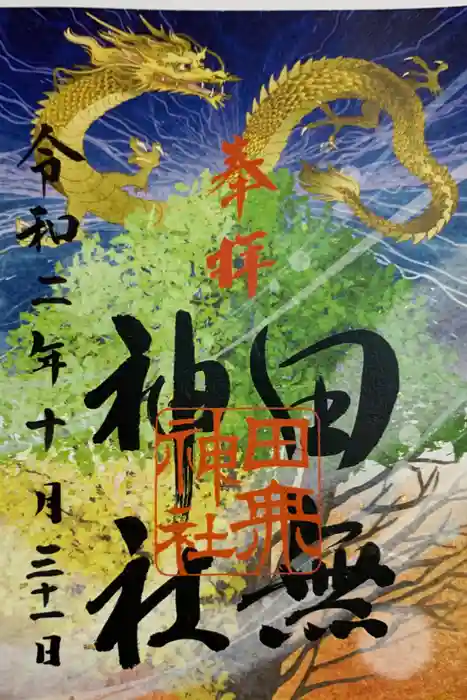 奉拝
田無
神社
田無
神社
令和二年十月三十一日